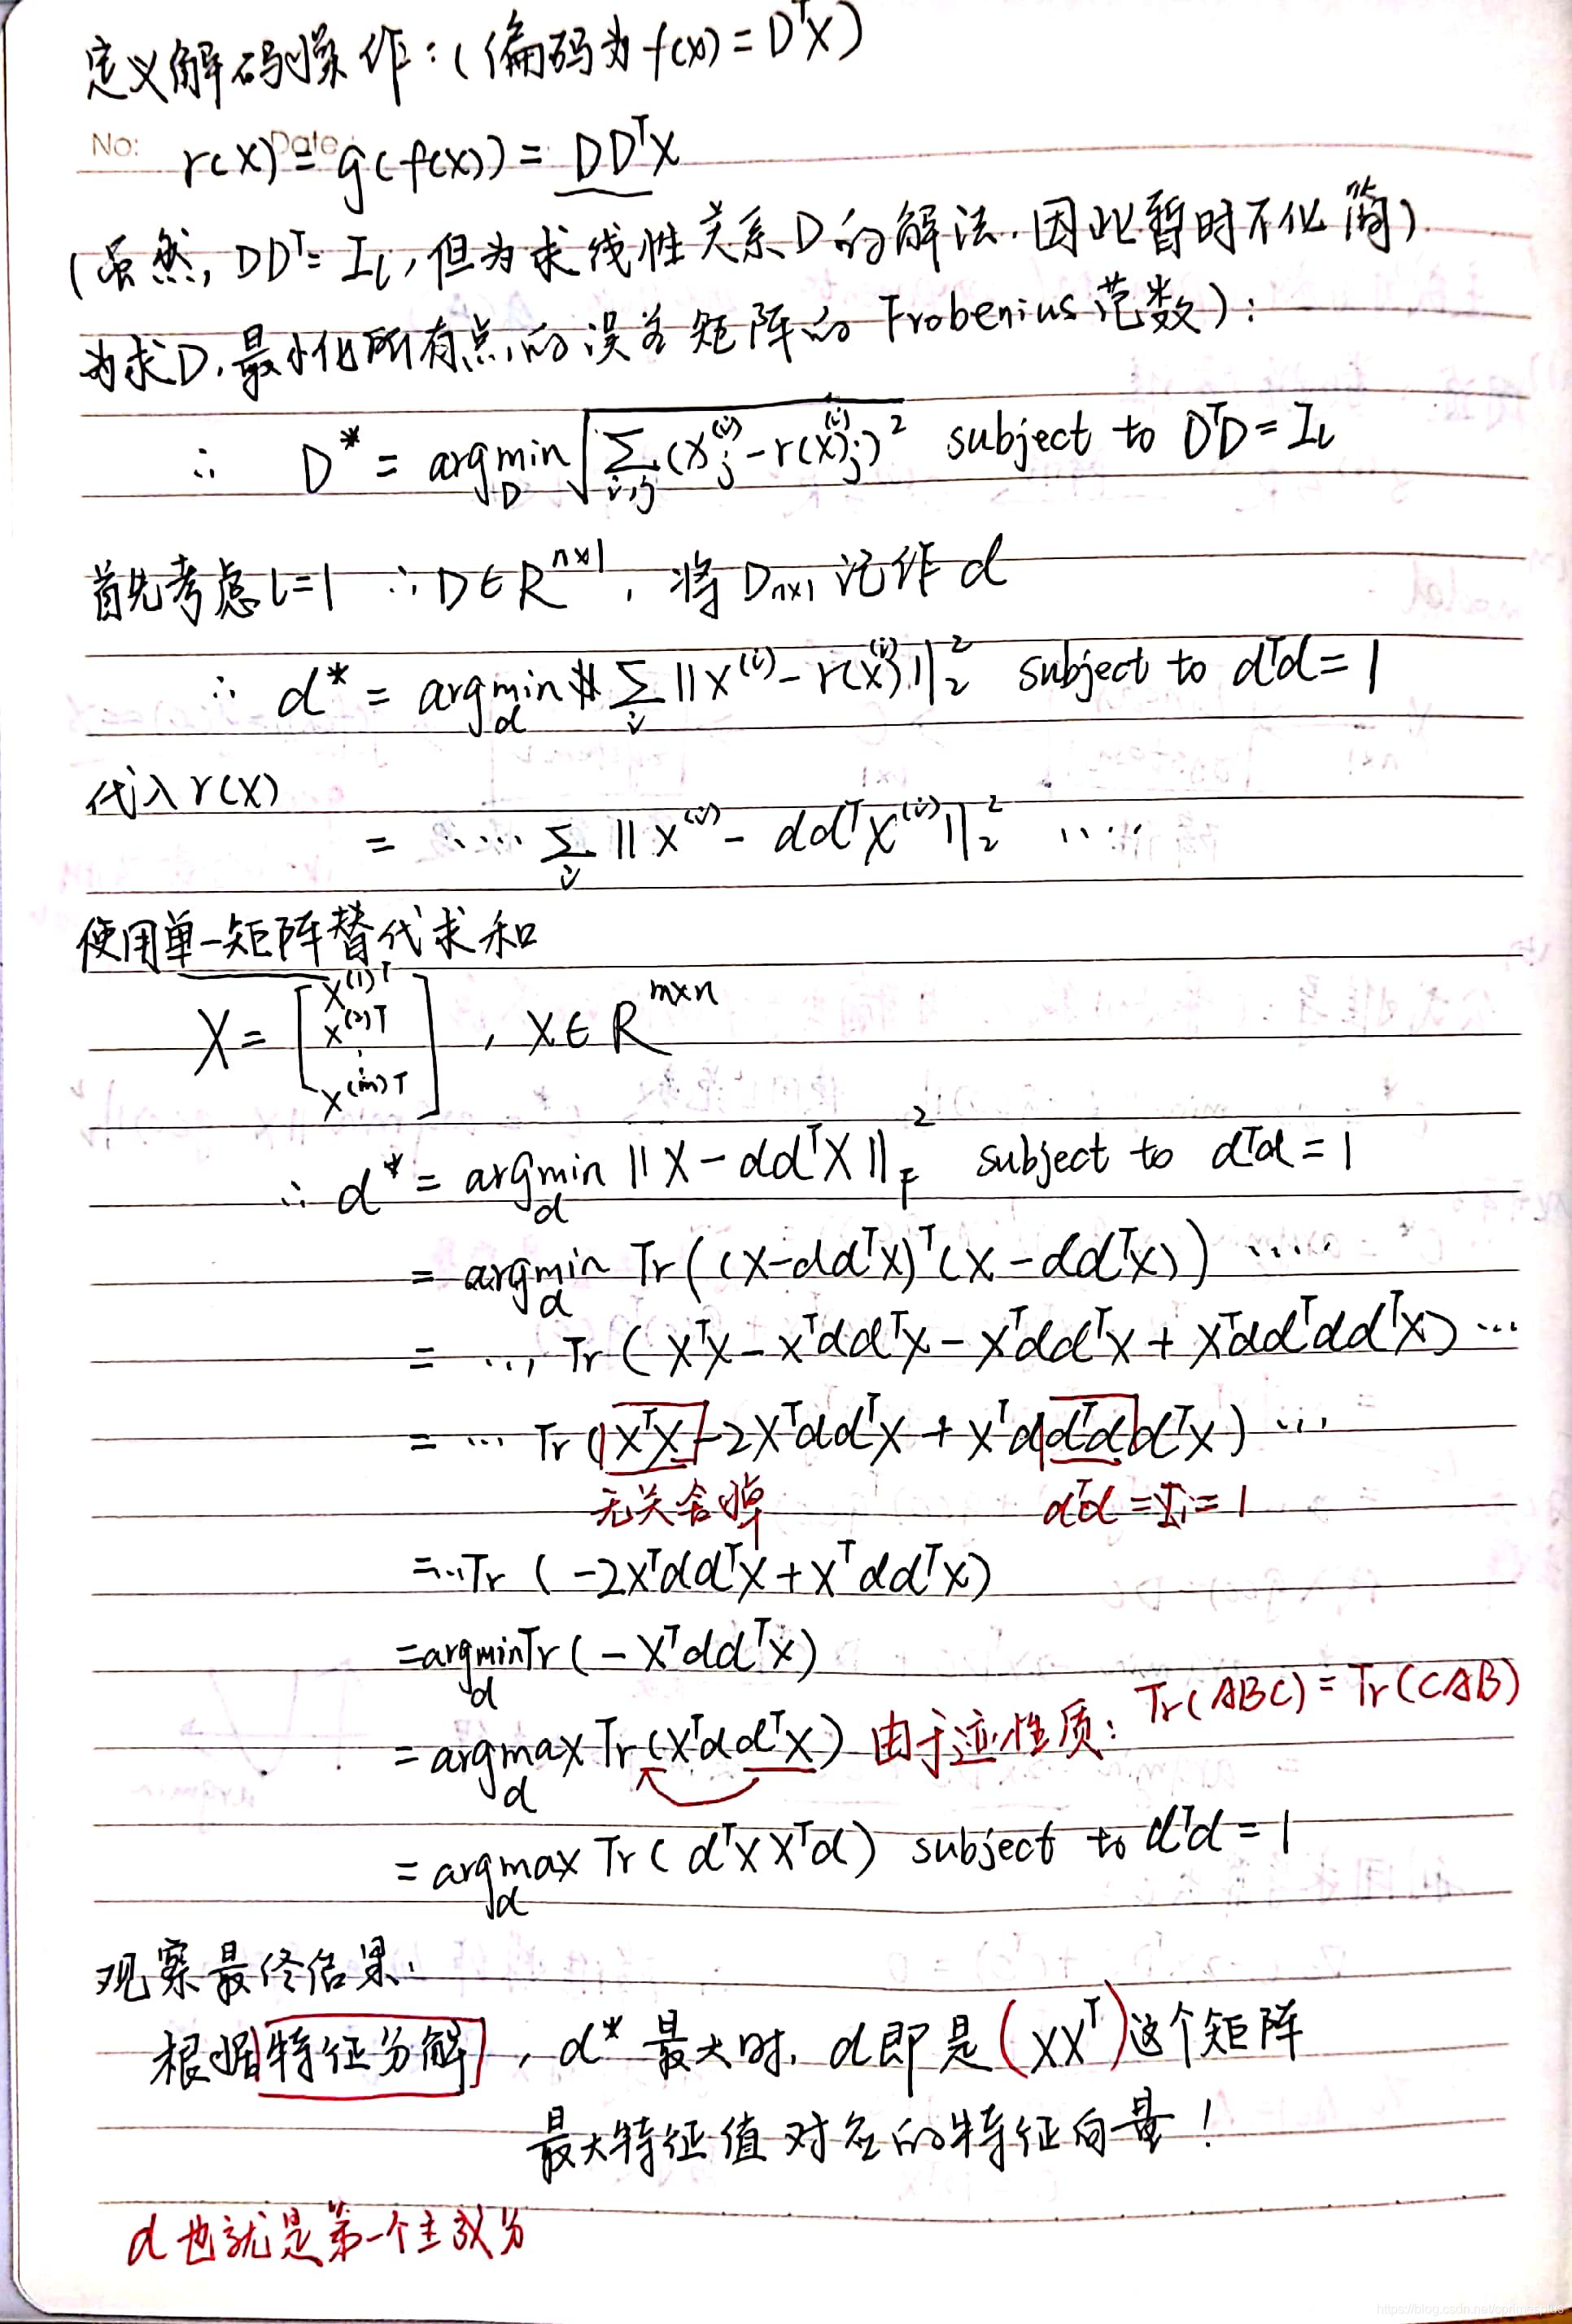 定义解码操作：(编码为 f(x) = DᵀX)
No: Date
r(x) = g(f(x)) = DDᵀX
(虽然, DDᵀ = Iₗ, 但为求线性关系D的解法.因此暂时不化简)
为求D, 最小化所有点的误差矩阵的 Frobenius范数):
∴ D* = argmin_D √(Σ_{i,j} (x_j^{(i)} - r(x^{(i)})_j)²) subject to DᵀD = Iₗ
首先考虑 l=1 ∴ D∈R^{n×1}, 将 D_{n×1} 记作 d
∴ d* = argmin_d Σ_i ||x^{(i)} - r(x^{(i)})||₂² subject to dᵀd = 1
代入 r(x)
= ····· Σ_i ||x^{(i)} - ddᵀx^{(i)}||₂² ·····
使用单一矩阵替代求和
X = [x^{(1)T} x^{(2)T} ⋮ x^{(m)T}], X∈R^{m×n}
∴ d* = argmin_d ||X - ddᵀX||_F² subject to dᵀd = 1
= argmin_d Tr((X-ddᵀX)ᵀ(X-ddᵀX)) ····
= ... Tr(XᵀX - XᵀddᵀX - XᵀddᵀX + XᵀddᵀddᵀX) ···
= ··· Tr(XᵀX - 2XᵀddᵀX + XᵀddᵀddᵀX) ···
无关舍掉 dᵀd = I₁ = 1
= ··· Tr(-2XᵀddᵀX + XᵀddᵀX)
= argmin_d Tr(-XᵀddᵀX)
= argmax_d Tr(XᵀddᵀX) 由于迹性质: Tr(ABC) = Tr(CAB)
= argmax_d Tr(dᵀXXᵀd) subject to dᵀd = 1
观察最终结果:
根据特征分解, d* 最大时, d即是(XXᵀ)这个矩阵
最大特征值对应的特征向量!
d也就是第一个主成分